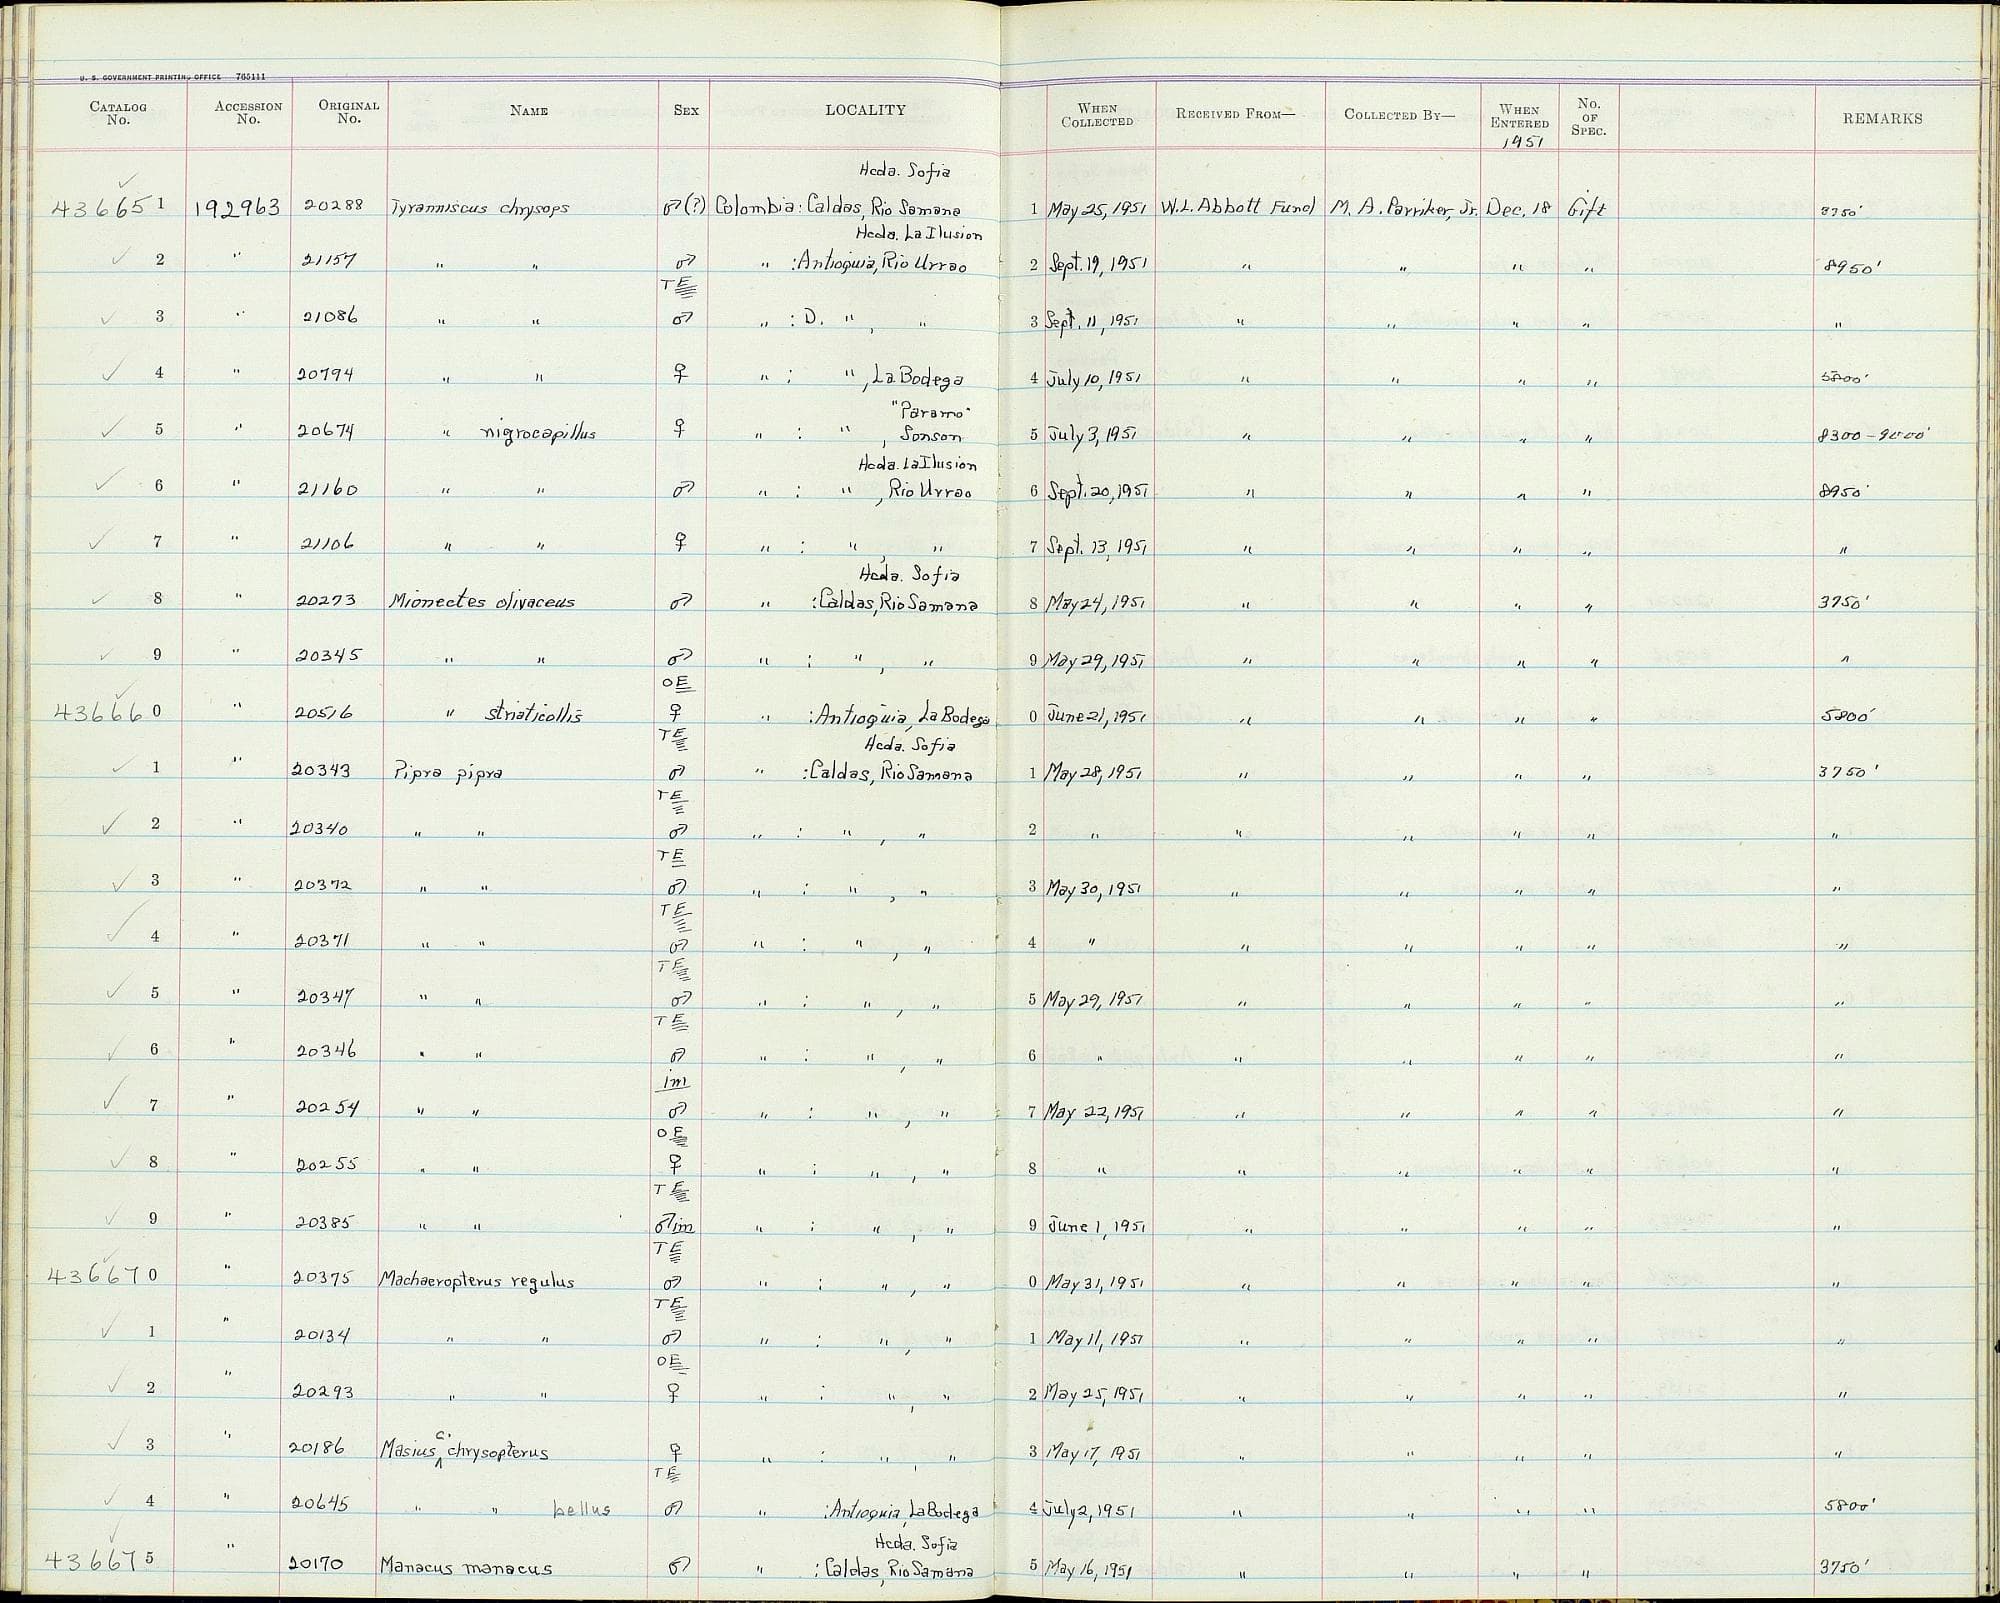 U. S. GOVERNMENT PRINTING OFFICE 765111
CATALOG No. ACCESSION No. ORIGINAL No. NAME SEX LOCALITY WHEN COLLECTED RECEIVED FROM— COLLECTED BY— WHEN ENTERED 1951 No. OF SPEC. REMARKS
Hcda. Sofia
436651 192963 20288 Tyranniscus chrysops ♂(?) Colombia: Caldas, Rio Samana 1 May 25, 1951 W.L. Abbott Fund M. A. Carriker, Jr. Dec. 18 Gift 3750'
Hcda. La Ilusion
2 " 21157 " " ♂ " :Antioquia, Rio Urrao 2 Sept. 19, 1951 " " " " 8950'
TE
3 " 21086 " " ♂ " : D. " , " 3 Sept. 11, 1951 " " " " "
4 " 20794 " " ♀ " : " , La Bodega 4 July 10, 1951 " " " " 5800'
"Paramo"
5 " 20674 " nigrocapillus ♀ " : " , Sonson 5 July 3, 1951 " " " " 8300-9000'
Hcda. La Ilusion
6 " 21160 " " ♂ " : " , Rio Urrao 6 Sept. 20, 1951 " " " " 8950'
7 " 21106 " " ♀ " : " , " 7 Sept. 13, 1951 " " " " "
Hcda. Sofia
8 " 20273 Mionectes olivaceus ♂ " :Caldas, Rio Samana 8 May 24, 1951 " " " " 3750'
9 " 20345 " " ♂ " : " , " 9 May 29, 1951 " " " " "
OE
436660 " 20516 " striaticollis ♀ " :Antioquia, La Bodega 0 June 21, 1951 " " " " 5800'
TE Hcda. Sofia
1 " 20343 Pipra pipra ♂ " :Caldas, Rio Samana 1 May 28, 1951 " " " " 3750'
TE
2 " 20340 " " ♂ " : " , " 2 " " " " " "
TE
3 " 20372 " " ♂ " : " , " 3 May 30, 1951 " " " " "
TE
4 " 20371 " " ♂ " : " , " 4 " " " " " "
TE
5 " 20347 " " ♂ " : " , " 5 May 29, 1951 " " " " "
TE
6 " 20346 " " ♂ " : " , " 6 " " " " " "
im
7 " 20254 " " ♂ " : " , " 7 May 22, 1951 " " " " "
OE
8 " 20255 " " ♀ " : " , " 8 " " " " " "
TE
9 " 20385 " " ♂im " : " , " 9 June 1, 1951 " " " " "
TE
436670 " 20375 Machaeropterus regulus ♂ " : " , " 0 May 31, 1951 " " " " "
TE
1 " 20134 " " ♂ " : " , " 1 May 11, 1951 " " " " "
OE
2 " 20293 " " ♀ " : " , " 2 May 25, 1951 " " " " "
3 " 20186 Masius c. chrysopterus ♀ " : " , " 3 May 17, 1951 " " " " "
TE
4 " 20645 " " bellus ♂ " :Antioquia, La Bodega 4 July 2, 1951 " " " " 5800'
Hcda. Sofia
436675 " 20170 Manacus manacus ♂ " :Caldas, Rio Samana 5 May 16, 1951 " " " " 3750'